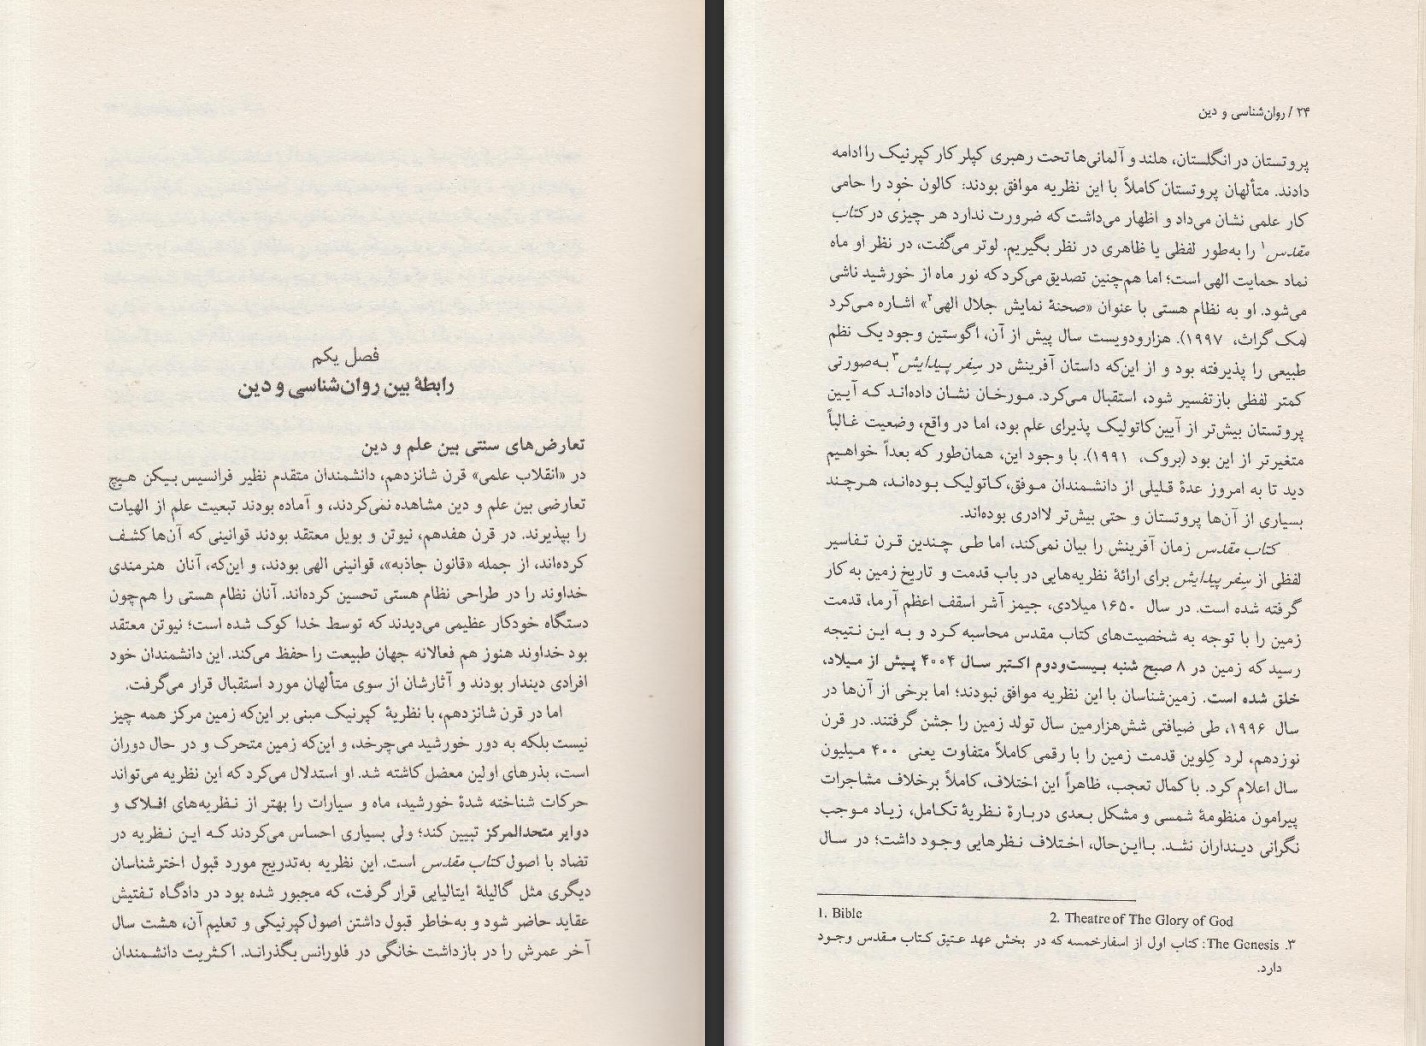 فصل یکم
رابطهٔ بین روان‌شناسی و دین
تعارض‌های سنتی بین علم و دین
در «انقلاب علمی» قرن شانزدهم، دانشمندان متقدم نظیر فرانسیس بیکن هیچ
تعارضی بین علم و دین مشاهده نمی‌کردند، و آماده بودند تبعیت علم از الهیات
را بپذیرند. در قرن هفدهم، نیوتن و بویل معتقد بودند قوانینی که آن‌ها کشف
کرده‌اند، از جمله «قانون جاذبه»، قوانینی الهی بودند، و این‌که، آنان هنرمندی
خداوند را در طراحی نظام هستی تحسین کرده‌اند. آنان نظام هستی را هم‌چون
دستگاه خودکار عظیمی می‌دیدند که توسط خدا کوک شده است؛ نیوتن معتقد
بود خداوند هنوز هم فعالانه جهان طبیعت را حفظ می‌کند. این دانشمندان خود
افرادی دیندار بودند و آثارشان از سوی متألهان مورد استقبال قرار می‌گرفت.
اما در قرن شانزدهم، با نظریهٔ کپرنیک مبنی بر این‌که زمین مرکز همه چیز
نیست بلکه به دور خورشید می‌چرخد، و این‌که زمین متحرک و در حال دوران
است، بذرهای اولین معضل کاشته شد. او استدلال می‌کرد که این نظریه می‌تواند
حرکات شناخته شدهٔ خورشید، ماه و سیارات را بهتر از نظریه‌های افلاک و
دوایر متحدالمرکز تبیین کند؛ ولی بسیاری احساس می‌کردند که این نظریه در
تضاد با اصول کتاب مقدس است. این نظریه به‌تدریج مورد قبول اخترشناسان
دیگری مثل گالیلهٔ ایتالیایی قرار گرفت، که مجبور شده بود در دادگاه تفتیش
عقاید حاضر شود و به‌خاطر قبول داشتن اصول کپرنیکی و تعلیم آن، هشت سال
آخر عمرش را در بازداشت خانگی در فلورانس بگذراند. اکثریت دانشمندان
۲۴ / روان‌شناسی و دین
پروتستان در انگلستان، هلند و آلمانی‌ها تحت رهبری کپلر کار کپرنیک را ادامه
دادند. متألهان پروتستان کاملاً با این نظریه موافق بودند: کالون خود را حامی
کار علمی نشان می‌داد و اظهار می‌داشت که ضرورت ندارد هر چیزی در کتاب
مقدس۱ را به‌طور لفظی یا ظاهری در نظر بگیریم. لوتر می‌گفت، در نظر او ماه
نماد حمایت الهی است؛ اما هم‌چنین تصدیق می‌کرد که نور ماه از خورشید ناشی
می‌شود. او به نظام هستی با عنوان «صحنهٔ نمایش جلال الهی۲» اشاره می‌کرد
(مک گراث، ۱۹۹۷). هزارودویست سال پیش از آن، اگوستین وجود یک نظم
طبیعی را پذیرفته بود و از این‌که داستان آفرینش در سِفر پیدایش۳ به‌صورتی
کمتر لفظی بازتفسیر شود، استقبال می‌کرد. مورخان نشان داده‌اند که آیین
پروتستان بیش‌تر از آیین کاتولیک پذیرای علم بود، اما در واقع، وضعیت غالباً
متغیرتر از این بود (بروک، ۱۹۹۱). با وجود این، همان‌طور که بعداً خواهیم
دید تا به امروز عدهٔ قلیلی از دانشمندان موفق، کاتولیک بوده‌اند، هرچند
بسیاری از آن‌ها پروتستان و حتی بیش‌تر لاادری بوده‌اند.
کتاب مقدس زمان آفرینش را بیان نمی‌کند، اما طی چندین قرن تفاسیر
لفظی از سِفر پیدایش برای ارائهٔ نظریه‌هایی در باب قدمت و تاریخ زمین به کار
گرفته شده است. در سال ۱۶۵۰ میلادی، جیمز آشر اسقف اعظم آرما، قدمت
زمین را با توجه به شخصیت‌های کتاب مقدس محاسبه کرد و به این نتیجه
رسید که زمین در ۸ صبح شنبه بیست‌ودوم اکتبر سال ۴۰۰۴ پیش از میلاد،
خلق شده است. زمین‌شناسان با این نظریه موافق نبودند؛ اما برخی از آن‌ها در
سال ۱۹۹۶، طی ضیافتی شش‌هزارمین سال تولد زمین را جشن گرفتند. در قرن
نوزدهم، لرد کِلوین قدمت زمین را با رقمی کاملاً متفاوت یعنی ۴۰۰ میلیون
سال اعلام کرد. با کمال تعجب، ظاهراً این اختلاف، کاملاً برخلاف مشاجرات
پیرامون منظومهٔ شمسی و مشکل بعدی دربارهٔ نظریهٔ تکامل، زیاد موجب
نگرانی دینداران نشد. بااین‌حال، اختلاف نظرهایی وجود داشت؛ در سال
1. Bible 2. Theatre of The Glory of God
۳. The Genesis: کتاب اول از اسفارخمسه که در بخش عهد عتیق کتاب مقدس وجود
دارد.